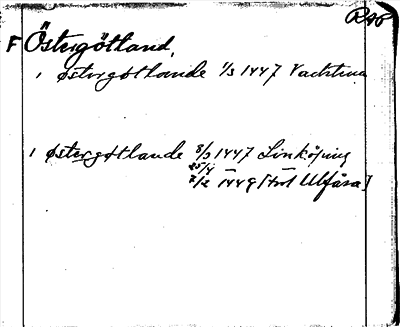 F Östergötland,
i østergøtlande 1/3 1447 Vadstena
i østergøtlande 8/3 1447 Linköping
25/4 —  —
7/2 1449 [trol Ulfåsa]